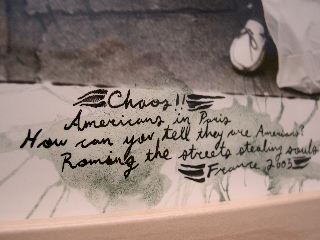 Chaos!!
Americans in Paris
How can you tell they are Americans?
Roming the streets stealing souls
France 2003